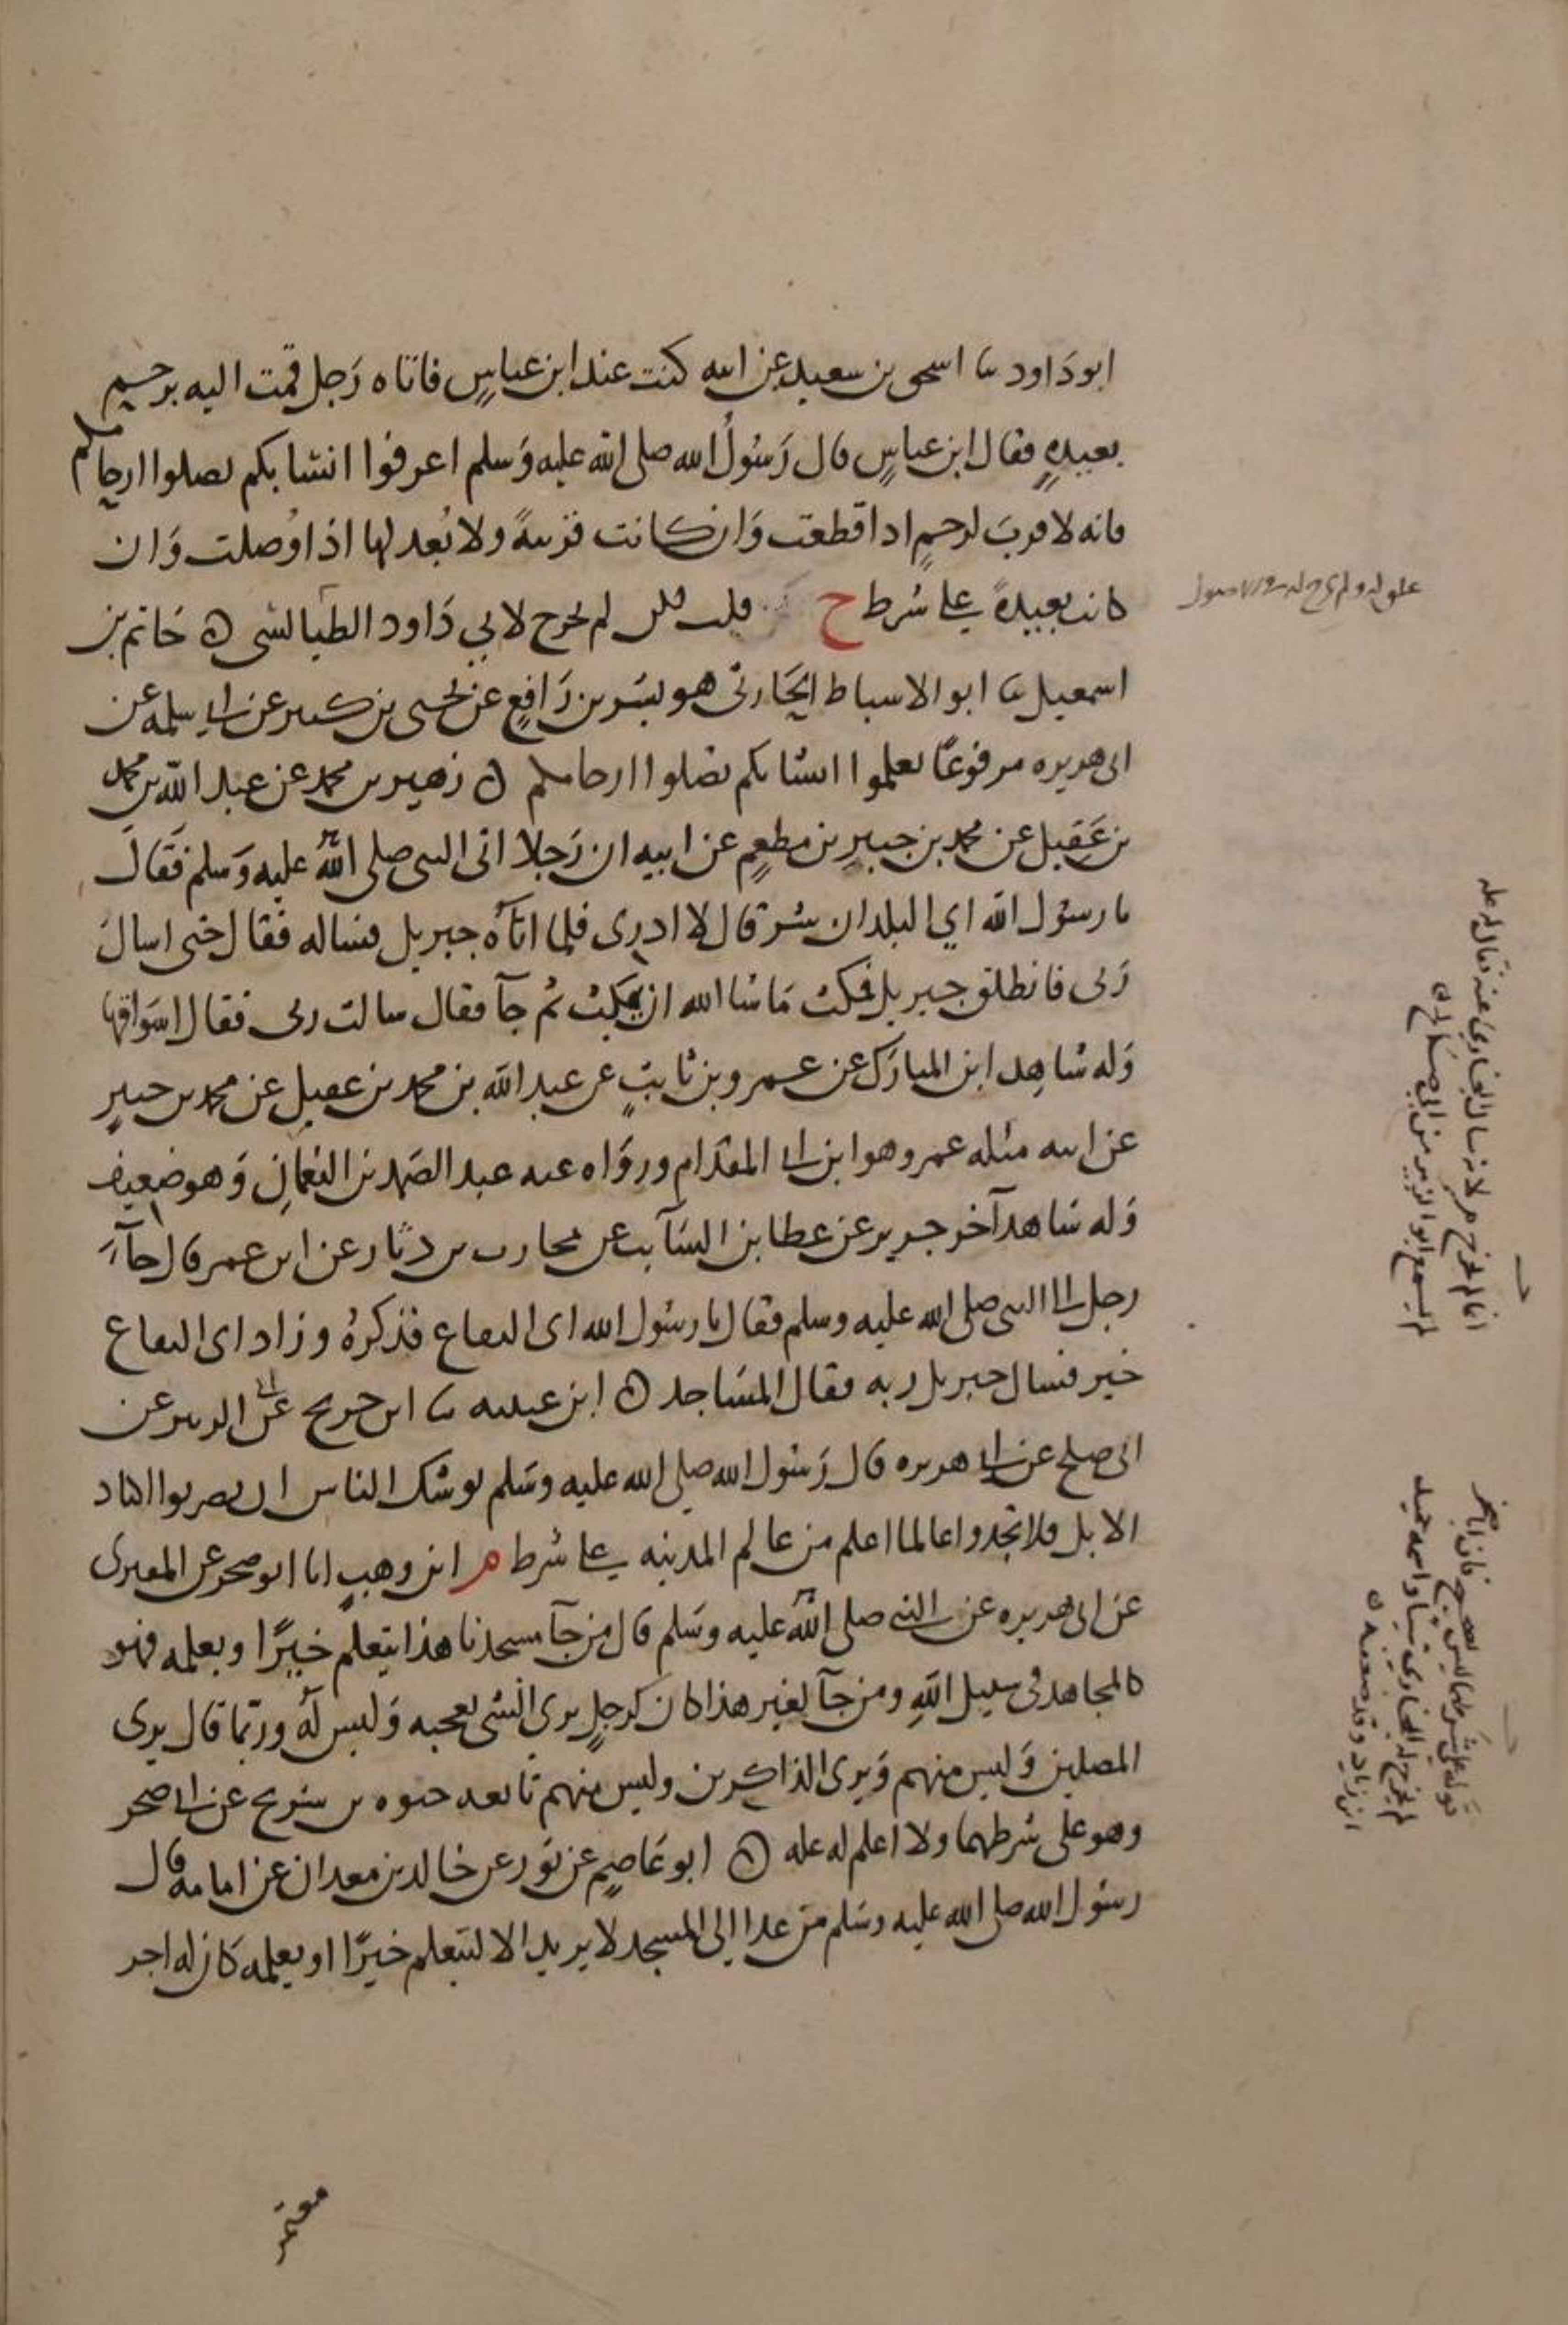 ابو داود ثنا اسحق بن سعيد عن ابيه كنت عند ابن عباسٍ فاتاه رَجل فمت اليه برحمٍ
بعيدهٍ فقال ابن عباسٍ قال رَسُولُ الله صلى الله عليه وَسلم اعرفوا انسابكم تصلوا ارحامكم
فانه لا قربَ لرحمٍ اذا قطعت وَان كانت قريبةً ولا بُعد لها اذا وُصلت وَان
كانت بعيدةً على شرط خ قلت لكن لم يخرج لابي دَاود الطيالسي ه حَاتم بن
اسمعيل ثنا ابو الاسباط الحَارثي هو بشر بن رَافعٍ عن يحيى بن كثير عن ابي سلمه عن
ابي هريره مرفوعًا تعلموا انسابكم تصلوا ارحامكم ه زهير بن محمد عن عبد الله بن محمد
بن عَقِيل عن محمد بن جبيرِ بن مطعمٍ عن ابيه ان رَجلا اتى النبي صلى اللهُ عليه وَسلم فَقَالَ
يا رسول الله اي البلدان شر قال لا ادري فلما اتاهُ جبريل فساله فقال حتى اسالَ
رَبي فانطلق جبريل فمكث مَا شا الله ان يمكث ثم جآ فقال سالت ربي فقال اسوَاقها
وَله شاهِد ابن المبارَك عن عمرو بن ثابتٍ عن عبد الله بن محمد بن عقيل عن محمد بن جبيرٍ
عن ابيه مثله عمرو هو ابن ابي المقدام ورَوَاه عنه عبد الصمد بن النعمانِ وَهو ضعيف
وَله شاهد آخر جرير عن عطا بن السَآيب عن محارب بن دثار عن ابن عمر قال جآءَ
رجل الى النبي صلى الله عليه وسلم فقال يا رسُول الله اي البقاع فذكرهُ وزاد اي البقاع
خير فسال جبريل ربه فقال المسَاجد ه ابن عيينه ثنا ابن جريج عن ابي الزبير عن
ابي صلح عن ابي هريره قال رَسُول الله صلى الله عليه وسَلم يوشك الناس ان يضربوا اكباد
الابل فلا تجدوا عالما اعلم من عالم المدينه على شرط م ابن وهبٍ انا ابو صخر عن المقبري
عن ابي هريره عن النبي صلى اللهُ عليه وسَلم قال من جآ مسجدنا هذا يتعلم خيرًا ويعلمه فهو
كالمجاهد في سبيل اللهِ ومن جآ لغير هذا كان كرجلٍ يرى الشي يعجبه وَليس لهُ وربمّا قال يرى
المصلين وَليس منهم وَيرى الذاكرين وليس منهم تابعه حيوه بن شريح عن ابي صخر
وهو على شرطهما ولا اعلم له عله ه ابو عَاصمٍ عن ثور عن خالد بن معدان عن ابي امامه قال
رسُول الله صلى الله عليه وسَلم من غدا الى المسجد لا يريد الا ليتعلم خيرًا او يعلمه كان له اجر
معتمر
علق له ولم يخرج له
انما لم يخرج م لانه سال البخاري عنه فقال له عله
لم يسمع ابو الزبير من ابي صَالح ه
قوله على شرطهما ليس بصحيح فان ابا صخر
لم يخرج له البخاري شيا واسمه حميد
ابن زياد وقد ضعف ه